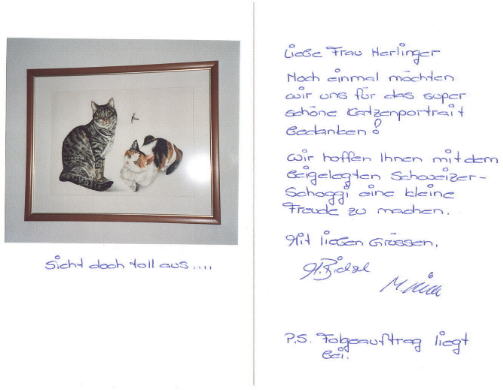 Sieht doch toll aus....
Liebe Frau Herlinger
Noch einmal möchten
wir uns für das super
schöne Katzenportrait
bedanken!
Wir hoffen Ihnen mit dem
beigelegten Schweizer-
Schoggi eine kleine
Freude zu machen.
Mit lieben Grüssen,
P.S. Folgeauftrag liegt
bei.